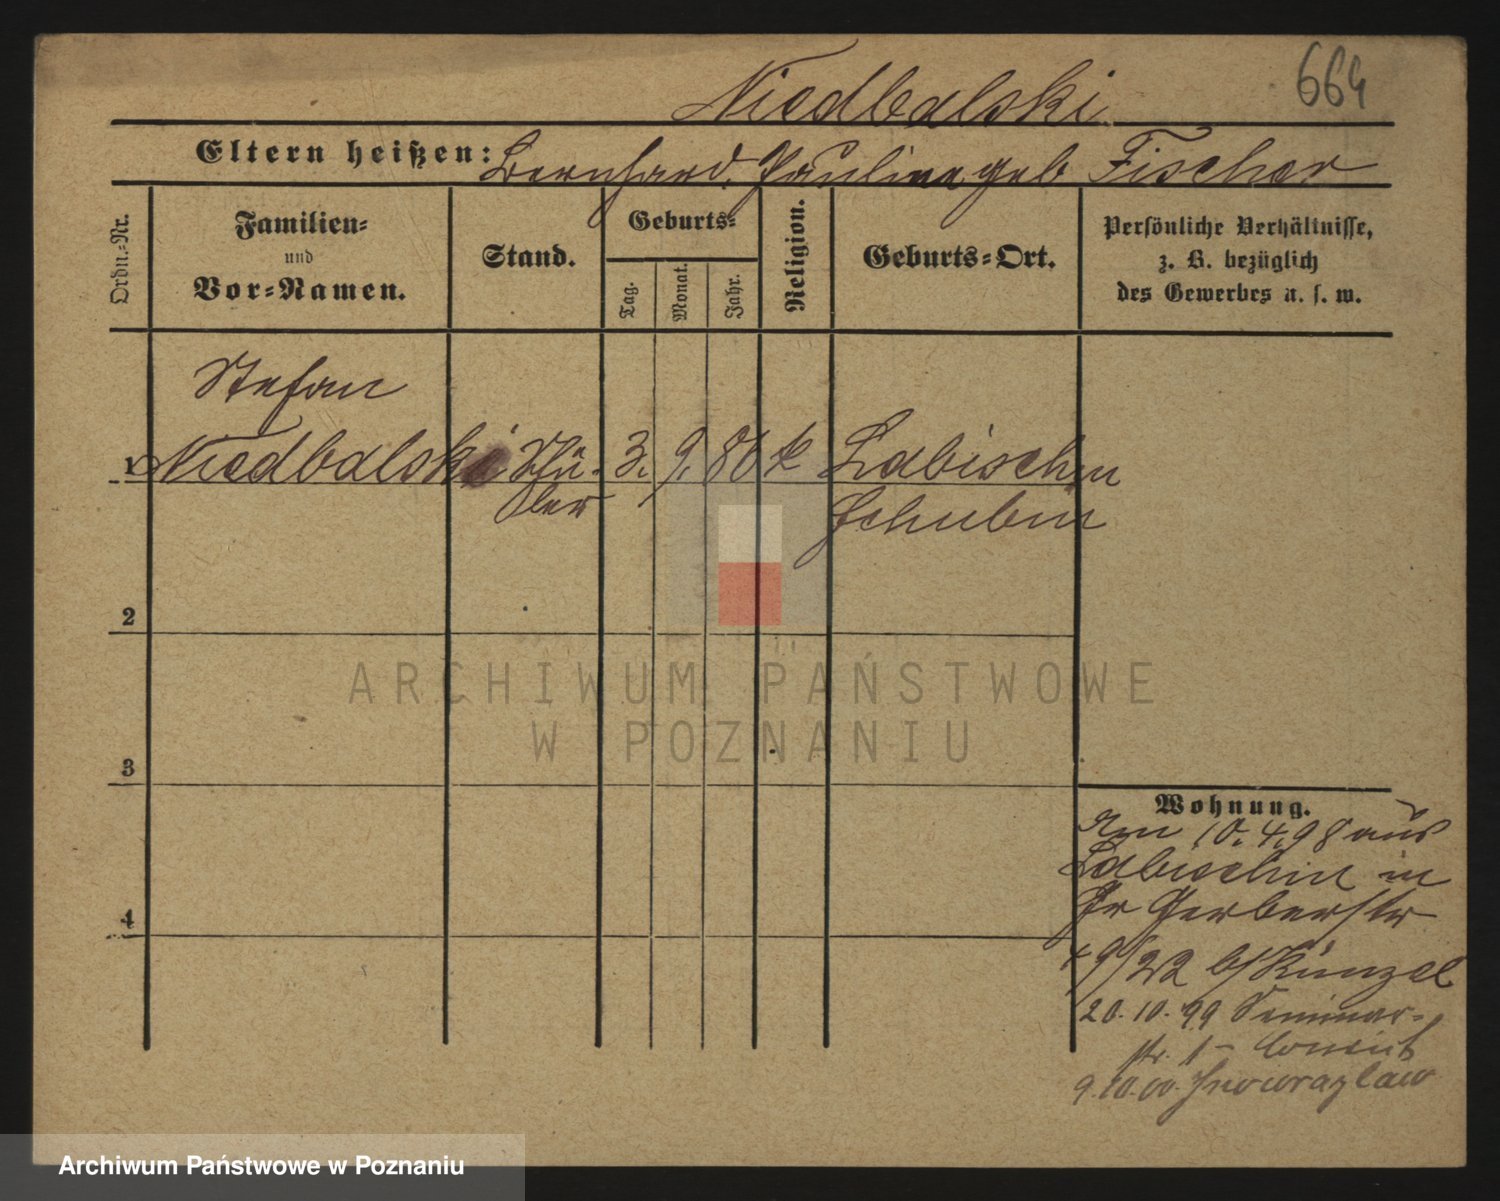 664
Niedbalski
Eltern heißen: Bernhard, Pauline geb Fischer
Ordn.-Nr.
Familien-
und
Vor-Namen.
Stand.
Geburts-
Tag.
Monat.
Jahr.
Religion.
Geburts-Ort.
Persönliche Verhältnisse,
z. B. bezüglich
des Gewerbes u. s. w.
Stefan
1 Niedbalski Schü- 3. 9. 86 k Labischin
ler Schubin
2
3
4
Wohnung.
Am 10.4.98 aus
Labischin in
Gr Gerberstr
49/22 b/Künzel
20.10.99 Seminar-
str. 1 -
9.10.00. Inowrazlaw
ARCHIWUM PAŃSTWOWE
W POZNANIU
Archiwum Państwowe w Poznaniu